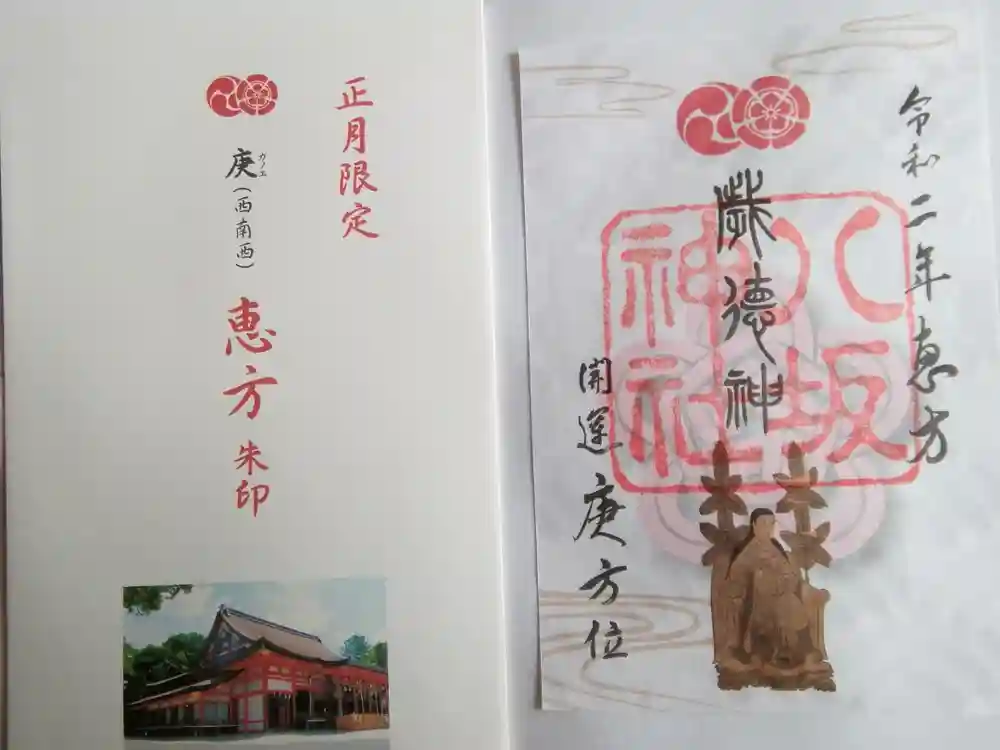 正月限定
庚(西南西)
カノエ
恵方 朱印
令和二年恵方
歳德神
八坂神社
開運 庚方位